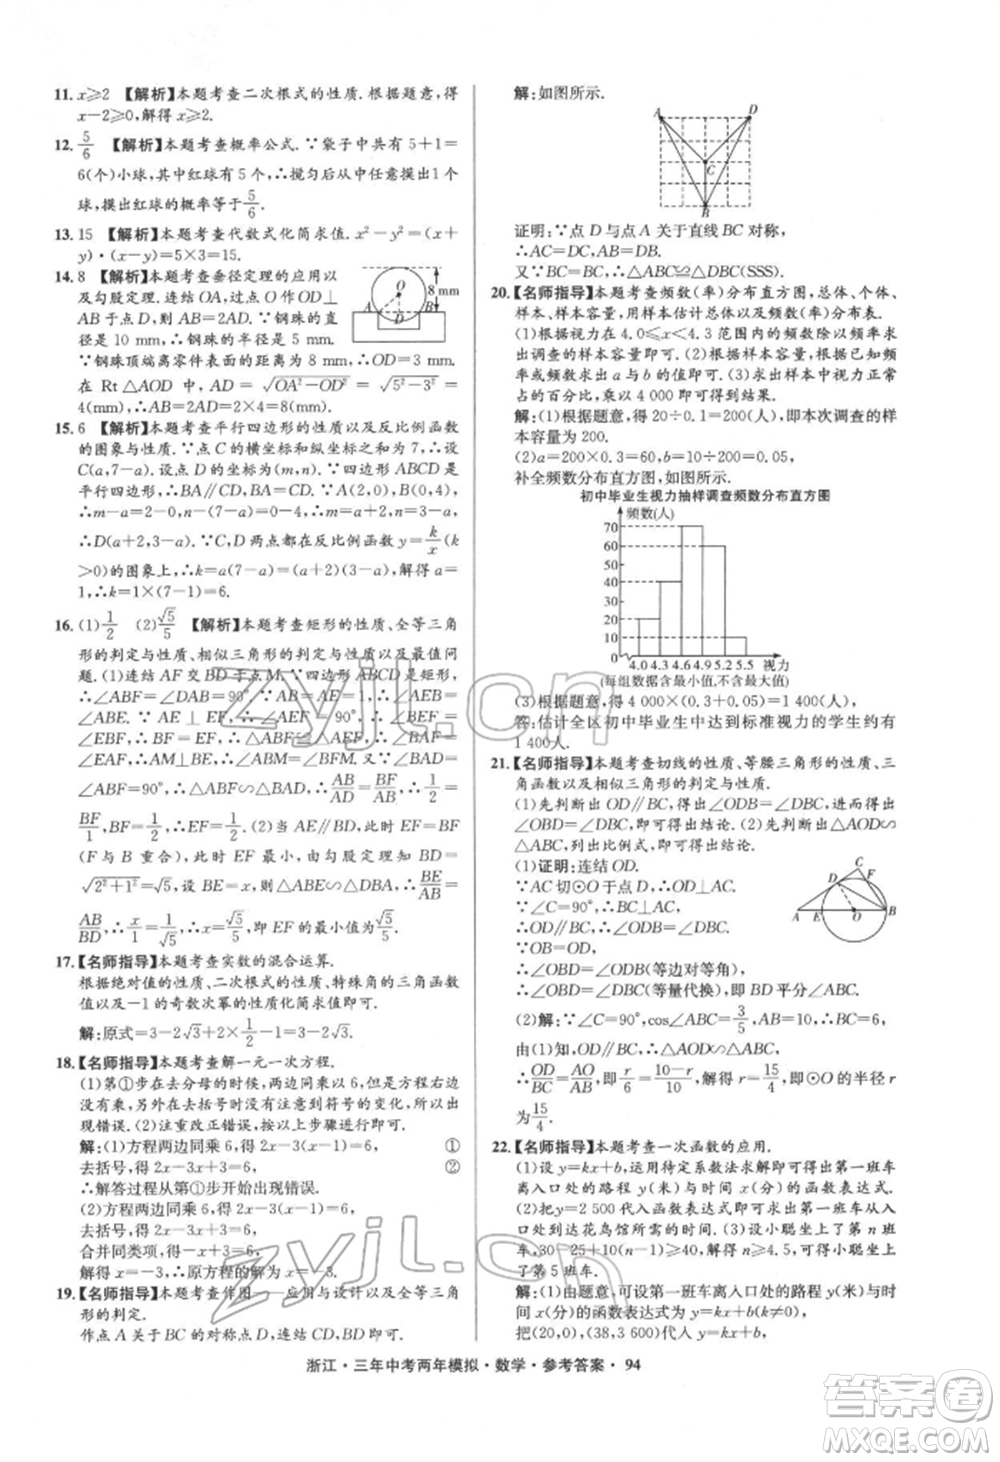 11. x≥2 【解析】本题考查二次根式的性质.根据题意,得
x−2≥0,解得 x≥2.
12. 5/6 【解析】本题考查概率公式.∵袋子中共有 5+1=
6(个)小球,其中红球有 5 个,∴搅匀后从中任意摸出一个
球,摸出红球的概率等于 5/6.
13. 15 【解析】本题考查代数式化简求值.x²−y²=(x+
y)·(x−y)=5×3=15.
14. 8 【解析】本题考查垂径定理的应用以
及勾股定理.连结 OA,过点 O 作 OD⊥
AB 于点 D,则 AB=2AD.∵钢珠的直
径是 10 mm,∴钢珠的半径是 5 mm.
∵钢珠顶端离零件表面的距离为 8 mm,∴OD=3 mm.
在 Rt△AOD 中, AD = √(OA²−OD²) = √(5²−3²) =
4(mm),∴AB=2AD=2×4=8(mm).
15. 6 【解析】本题考查平行四边形的性质以及反比例函数
的图象与性质.∵点 C 的横坐标和纵坐标之和为 7,∴设
C(a,7−a).设点 D 的坐标为(m,n).∵四边形 ABCD
是平行四边形,∴AB∥CD,AB=CD.∵A(0,0),B(2,0),
∴m−a=2−0,n−(7−a)=0−0,∴m=a+2,n=7−a,
∴D(a+2,7−a).∵C,D 两点都在反比例函数 y=k/x(k
>0)的图象上,∴k=a(7−a)=(a+2)(7−a),解得 a=
1,∴k=1×(7−1)=6.
16. (1)1/2 (2)√5/5 【解析】本题考查矩形的性质、全等三角
形的判定与性质、相似三角形的判定与性质以及最值问
题.(1)连结 AF 交 BD 于点 M.∵四边形 ABCD 是矩形,
EAF,AE⊥BD,∴AM⊥BE,∴∠ABM+∠BAM=
∠ABF=90°,∴△ABF∽△DAB,∴AB/AD=BF/AB,即1/2=
BF/1,BF=1/2.(2)当 AE∥BD,此时 EF 最小
(F 与 B 重合),此时,由勾股定理可得 BD=
√(2²+1²)=√5,由题意,得△ABE∽△DBA,∴BE/BA=
AB/BD,∴x/1=1/√5,∴x=√5/5,即 EF 的最小值为√5/5.
17. 【名师指导】本题考查实数的混合运算.
根据绝对值的性质、二次根式的性质、特殊角的三角函数
值以及−1 的奇数次幂的性质化简求值即可.
解:原式=3−2√3+2×1/2−1=3−2√3.
18. 【名师指导】本题考查解一元一次方程.
(1)第①步在去分母的时候,两边同乘以 6,但是方程右
边没有乘 6,在去括号时没有注意到符号的变化,所以出
现错误.(2)注意改正错误,按以上步骤进行即可.
解:(1)方程两边同乘 6,得 2x−3(x−1)=6, ①
去括号,得 2x−3x+3=6, ②
∴解答过程从第①步开始出现错误.
(2)方程两边同乘 6,得 2x−3(x−1)=6,
去括号,得 2x−3x+3=6,
合并同类项,得−x=3,
解得 x=−3,∴原方程的解为 x=−3.
19. 【名师指导】本题考查作图——应用与设计以及全等三角
形的判定.
作点 A 关于 BC 的对称点 D,连结 BD,CD 即可.
解:如图所示.
证明:∵点 D 与点 A 关于直线 BC 对称,
∴AC=DC,AB=DB.
又∵BC=BC,∴△ABC≌△DBC(SSS).
20. 【名师指导】本题考查频数(率)分布直方图,总体、个体、
样本、样本容量,用样本估计总体以及频数(率)分布表.
(1)根据视力在 4.0≤x<4.3 范围内的频数除以频率求
出调查的样本容量即可.(2)根据样本容量,根据已知频
率或频数求出 a,b 的值即可.(3)求出样本中视力正常所
占的百分比,乘以 4 000 即可得到结果.
解:(1)根据题意,得 20÷0.1=200(人),即本次调查的样
本容量为 200.
(2)a=200×0.3=60,b=10÷200=0.05,
补全频数分布直方图,如图所示.
初中毕业生视力抽样调查频数分布直方图
频数(人)
70
60
50
40
30
20
10
0
4.0 4.3 4.6 4.9 5.2 5.5 视力
(每组数据含最小值,不含最大值)
(3)根据题意,得 4 000×(0.3+0.05)=1 400(人),
答:估计全区初中毕业生中达到标准视力的学生约有
1 400人.
21. 【名师指导】本题考查切线的性质、等腰三角形的性质、三
角函数以及相似三角形的判定与性质.
(1)先判断出 OD∥BC,得出∠ODB=∠DBC,再判断出
∠OBD=∠ODB,即可得出结论.(2)先判断出△AOD∽
△ABC,列出比例式,即可得出结论.
(1)证明:连结 OD.
∵AC 切⊙O 于点 D,∴OD⊥AC.
∵∠C=90°,∴BC⊥AC,
∴OD∥BC,∴∠ODB=∠DBC.
∵OB=OD,
∴∠OBD=∠ODB(等边对等角),
∴∠OBD=∠DBC(等量代换),即 BD 平分∠ABC.
(2)解:∵∠C=90°,cos∠ABC=3/5,BC=6,
由(1)知,OD∥BC,∴△AOD∽△ABC,
∴OD/BC=AO/AB,即r/6=(10−r)/10,解得 r=15/4,即⊙O 的半径 r
为15/4.
22. 【名师指导】本题考查一次函数的应用.
(1)设 y=kx+b,运用待定系数法求解即可得到第一班车
离入口处的路程 y(米)与时间 x(分)的函数表达式.
(2)把 y=2 500 代入 y=kx+b,即可求出第一班车从入
口处到达花鸟馆所需的时间.(3)设小聪坐上了第 n 班
车,30−25+10(n−1)≥40,解得 n≥4.5,∴小聪坐上
了第 5 班车.
解:(1)由题意得,可设第一班车离入口处的路程 y(米)与
时间 x(分)的函数表达式为 y=kx+b(k≠0).
把(20,0),(38,3 600)代入 y=kx+b,
浙江·三年中考两年模拟·数学·参考答案·94
zyjl.cn
zyjl.cn
答案圈
MXQE.COM